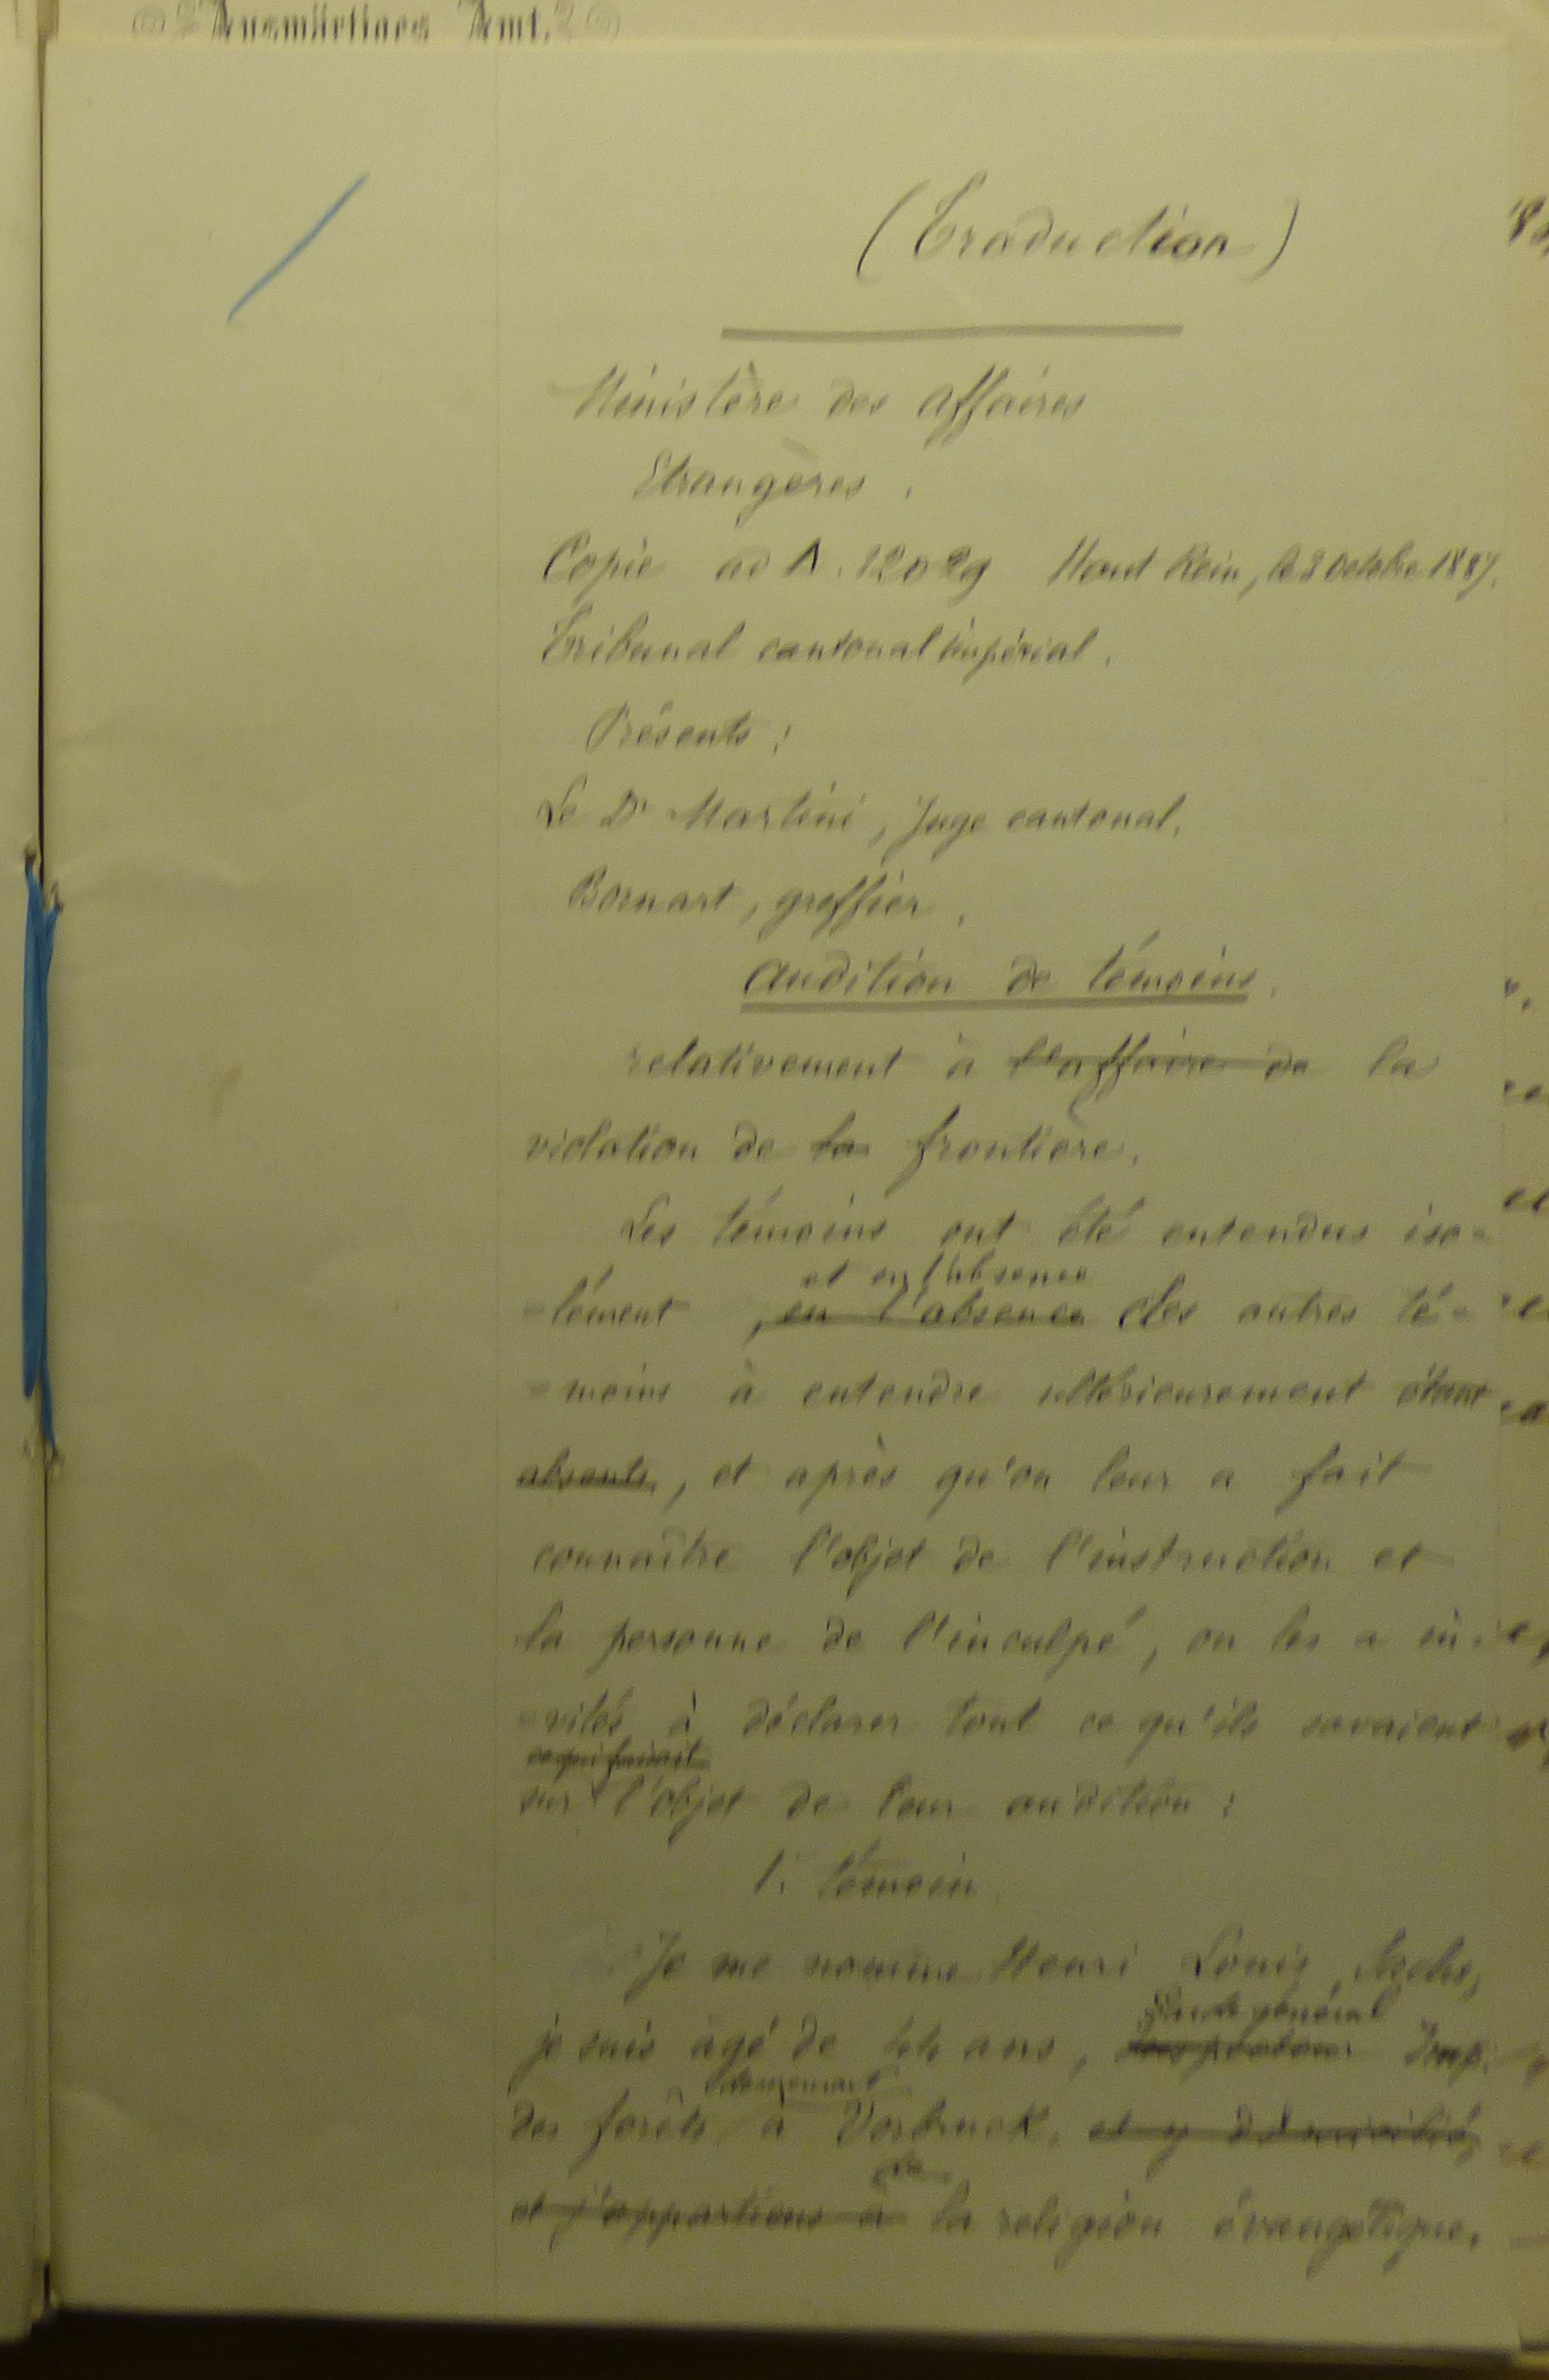 Auswärtiges Amt.
(Traduction)
Ministère des affaires
Etrangères.
Copie ad A. 12029 Haut Rein, le 8 Octobre 1887.
Tribunal cantonal impérial.
Présents :
Le Dr Martini, Juge cantonal.
Bornart, greffier.
Audition de témoins.
relativement à l'affaire de la
violation de la frontière.
Les témoins ont été entendus iso-
et en l'absence
-lément, en l'absence des autres té-
-moins à entendre ultérieurement étant
absents, et après qu'on leur a fait
connaître l'objet de l'instruction et
la personne de l'inculpé, on les a in-
-vités à déclarer tout ce qu'ils savaient
sur l'objet de leur audition :
1. témoin.
Je me nomme Henri Louis
Garde général
je suis âgé de 44 ans, Imp.
des forêts à Vorbruck, et y domicilié,
de
et j'appartiens à la religion évangélique.